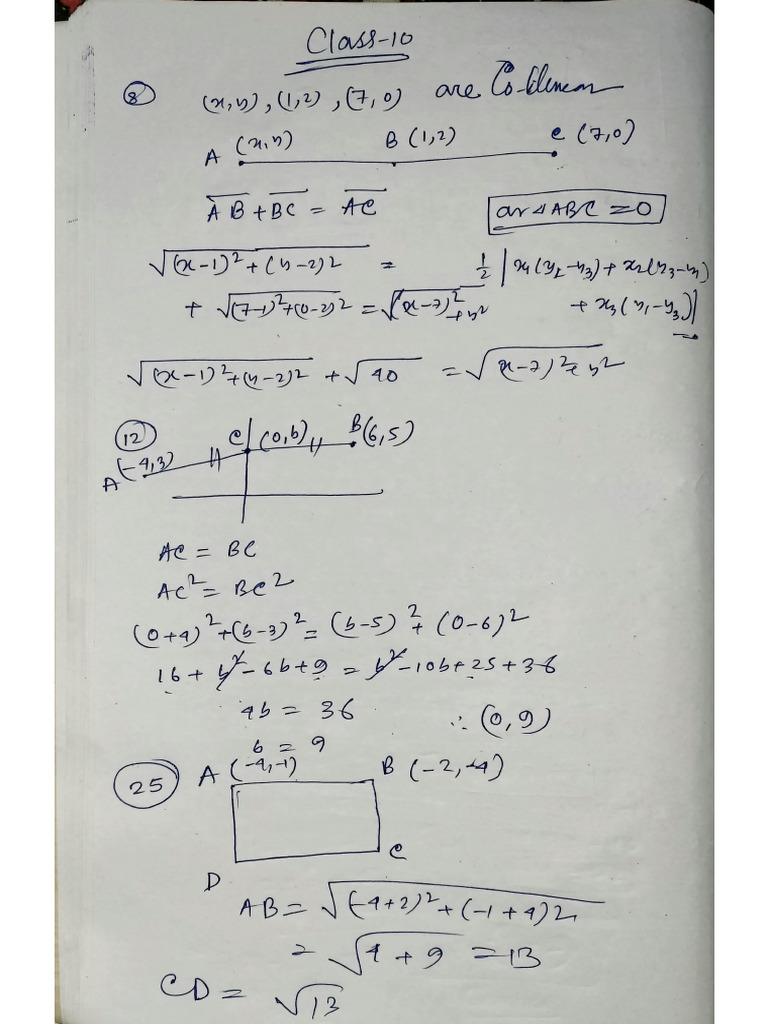 Class-10
⑧ (x,y), (1,2), (7,0) are Co-llinear
A (x,y) B (1,2) C (7,0)
AB + BC = AC ar △ABC = 0
√(x-1)² + (y-2)² = ½ |x₁(y₂-y₃) + x₂(y₃-y₁)
+ √(7-1)²+(0-2)² = √(x-7)²+y² + x₃(y₁-y₃)|
√(x-1)²+(y-2)² + √40 = √(x-7)²+y²
⑫ C (0,b) B(6,5)
A (-4,3)
AC = BC
AC² = BC²
(0+4)²+(b-3)² = (b-5)² + (0-6)²
16 + b² - 6b + 9 = b² - 10b + 25 + 36
4b = 36 ∴ (0, 9)
b = 9
㉕ A (-4,-1) B (-2,-4)
C
D
AB = √(-4+2)² + (-1+4)²
= √4 + 9 = 13
CD = √13